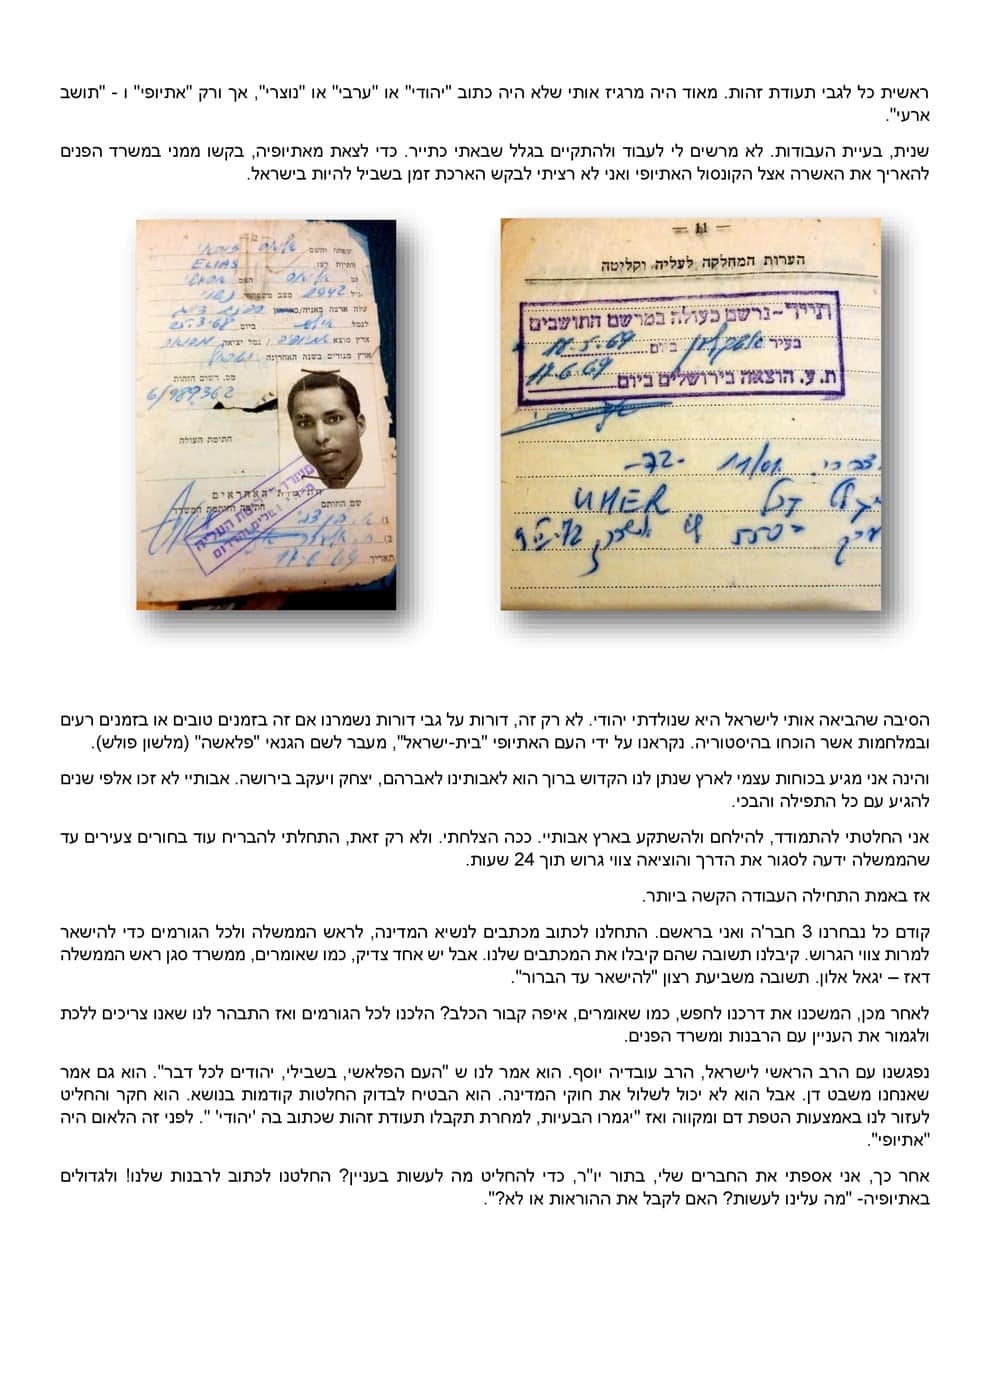 ראשית כל לגבי תעודת זהות. מאוד היה מרגיז אותי שלא היה כתוב "יהודי" או "ערבי" או "נוצרי", אך ורק "אתיופי" ו - "תושב
ארעי".
שנית, בעיית העבודות. לא מרשים לי לעבוד ולהתקיים בגלל שבאתי כתייר. כדי לצאת מאתיופיה, בקשו ממני במשרד הפנים
להאריך את האשרה אצל הקונסול האתיופי ואני לא רציתי לבקש הארכת זמן בשביל להיות בישראל.
— 11 —
הערות המחלקה לעליה וקליטה
תייר - נרשם כעולה במרשם התושבים
בעיר אשקלון ביום
ת.ע. הוצאה בירושלים ביום 17.6.69
11/01 -72-
UHER
ELIAS
1942
ביום 25.3.68
ארץ מגורים בשנה האחרונה
מס. רשום הזהות
6/989362
חתימת העולה
שם החותם
תאריך
הסיבה שהביאה אותי לישראל היא שנולדתי יהודי. לא רק זה, דורות על גבי דורות נשמרנו אם זה בזמנים טובים או בזמנים רעים
ובמלחמות אשר הוכחו בהיסטוריה. נקראנו על ידי העם האתיופי "בית-ישראל", מעבר לשם הגנאי "פלאשה" (מלשון פולש).
והינה אני מגיע בכוחות עצמי לארץ שנתן לנו הקדוש ברוך הוא לאבותינו לאברהם, יצחק ויעקב בירושה. אבותיי לא זכו אלפי שנים
להגיע עם כל התפילה והבכי.
אני החלטתי להתמודד, להילחם ולהשתקע בארץ אבותיי. ככה הצלחתי. ולא רק זאת, התחלתי להבריח עוד בחורים צעירים עד
שהממשלה ידעה לסגור את הדרך והוציאה צווי גרוש תוך 24 שעות.
אז באמת התחילה העבודה הקשה ביותר.
קודם כל נבחרנו 3 חבר'ה ואני בראשם. התחלנו לכתוב מכתבים לנשיא המדינה, לראש הממשלה ולכל הגורמים כדי להישאר
למרות צווי הגרוש. קיבלנו תשובה שהם קיבלו את המכתבים שלנו. אבל יש אחד צדיק, כמו שאומרים, ממשרד סגן ראש הממשלה
דאז – יגאל אלון. תשובה משביעת רצון "להישאר עד הברור".
לאחר מכן, המשכנו את דרכנו לחפש, כמו שאומרים, איפה קבור הכלב? הלכנו לכל הגורמים ואז התבהר לנו שאנו צריכים ללכת
ולגמור את העניין עם הרבנות ומשרד הפנים.
נפגשנו עם הרב הראשי לישראל, הרב עובדיה יוסף. הוא אמר לנו ש "העם הפלאשי, בשבילי, יהודים לכל דבר". הוא גם אמר
שאנחנו משבט דן. אבל הוא לא יכול לשלול את חוקי המדינה. הוא הבטיח לבדוק החלטות קודמות בנושא. הוא חקר והחליט
לעזור לנו באמצעות הטפת דם ומקווה ואז "יגמרו הבעיות, למחרת תקבלו תעודת זהות שכתוב בה 'יהודי' ". לפני זה הלאום היה
"אתיופי".
אחר כך, אני אספתי את החברים שלי, בתור יו"ר, כדי להחליט מה לעשות בעניין? החלטנו לכתוב לרבנות שלנו! ולגדולים
באתיופיה- "מה עלינו לעשות? האם לקבל את ההוראות או לא?".